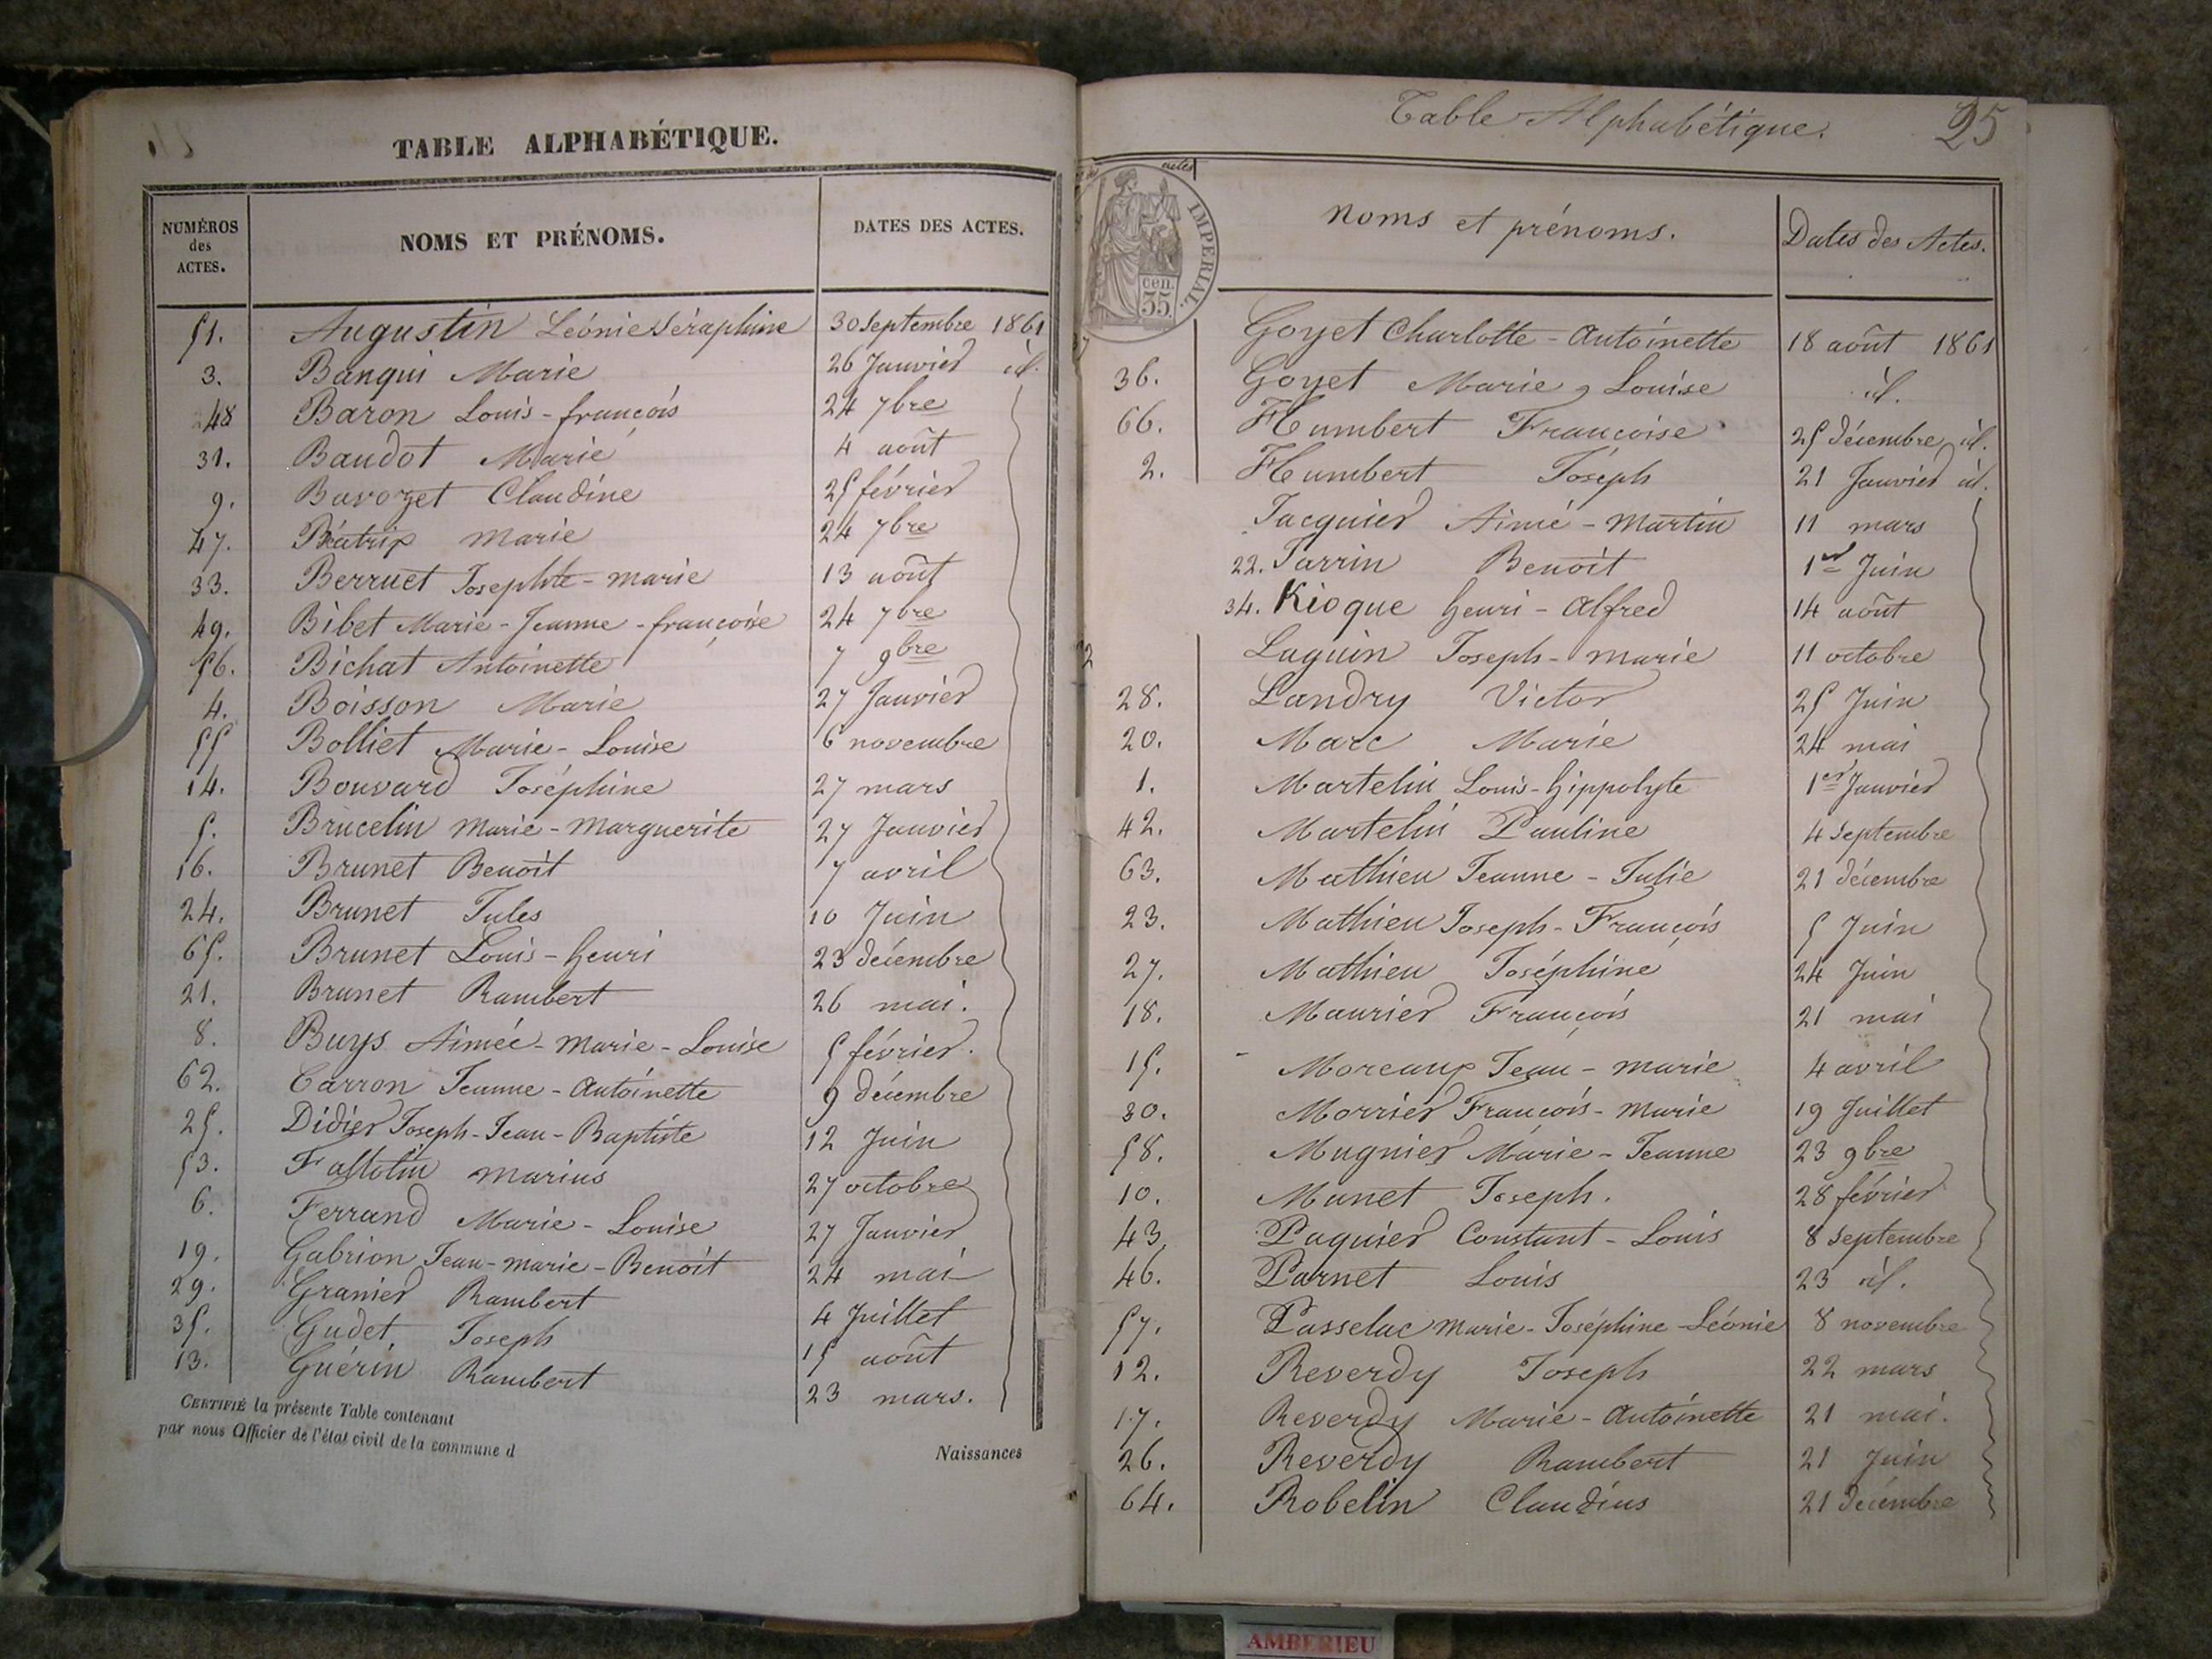 TABLE ALPHABÉTIQUE.
NUMÉROS des ACTES. NOMS ET PRÉNOMS. DATES DES ACTES.
51. Augustin Léonie Séraphine 30 Septembre 1861
3. Banqui Marie 26 Janvier id.
48 Baron Louis-françois 24 7bre
31. Baudot Marie 4 août
9. Bavozet Claudine 25 février
47. Béatrix Marie 24 7bre
33. Berruet Josephte-marie 13 août
49. Bibet Marie-Jeanne-françoise 24 7bre
56. Bichat Antoinette 7 9bre
4. Boisson Marie 27 Janvier
55 Bolliet Marie-Louise 6 novembre
14. Bouvard Joséphine 27 mars
5. Brucelin Marie-Marguerite 27 Janvier
16. Brunet Benoit 7 avril
24. Brunet Jules 10 Juin
65. Brunet Louis-henri 23 décembre
21. Brunet Rambert 26 mai.
8. Buys Aimée-Marie-Louise 5 février.
62. Carron Jeanne-Antoinette 9 décembre
25. Didier Joseph-Jean-Baptiste 12 Juin
53. Fastolin Marius 27 octobre
6. Ferrand Marie-Louise 27 Janvier
19. Gabrion Jean-marie-Benoit 24 mai
29. Granier Rambert 4 Juillet
35. Gudet Joseph 15 août
13. Guérin Rambert 23 mars.
CERTIFIÉ la présente Table contenant Naissances
par nous Officier de l'état civil de la commune d
Table Alphabétique. 25
actes noms et prénoms. Dates des Actes.
IMPERIAL.
35 cen.
Goyet Charlotte-Antoinette 18 août 1861
36. Goyet Marie, Louise id.
66. Humbert Françoise 25 décembre id.
2. Humbert Joseph 21 Janvier id.
Jacquier Aimé-Martin 11 mars
22. Jarrin Benoit 1er Juin
34. Kioque henri-Alfred 14 août
Laguin Joseph-marie 11 octobre
28. Landry Victor 25 Juin
20. Marc Marie 24 mai
1. Martelin Louis-hippolyte 1er Janvier
42. Martelin Pauline 4 Septembre
63. Mathieu Jeanne-Julie 21 décembre
23. Mathieu Joseph-François 5 Juin
27. Mathieu Joséphine 24 Juin
18. Maurier François 21 mai
15. Moreaux Jean-marie 4 avril
30. Morrier François-Marie 19 Juillet
58. Mugnier Marie-Jeanne 23 9bre
10. Munet Joseph. 28 février
43. Paquier Constant-Louis 8 Septembre
46. Parnet Louis 23 id.
57. Passelac Marie-Joséphine-Léonie 8 novembre
12. Reverdy Joseph 22 mars
17. Reverdy Marie-Antoinette 21 mai.
26. Reverdy Rambert 21 Juin
64. Robelin Claudius 21 Décembre
AMBERIEU